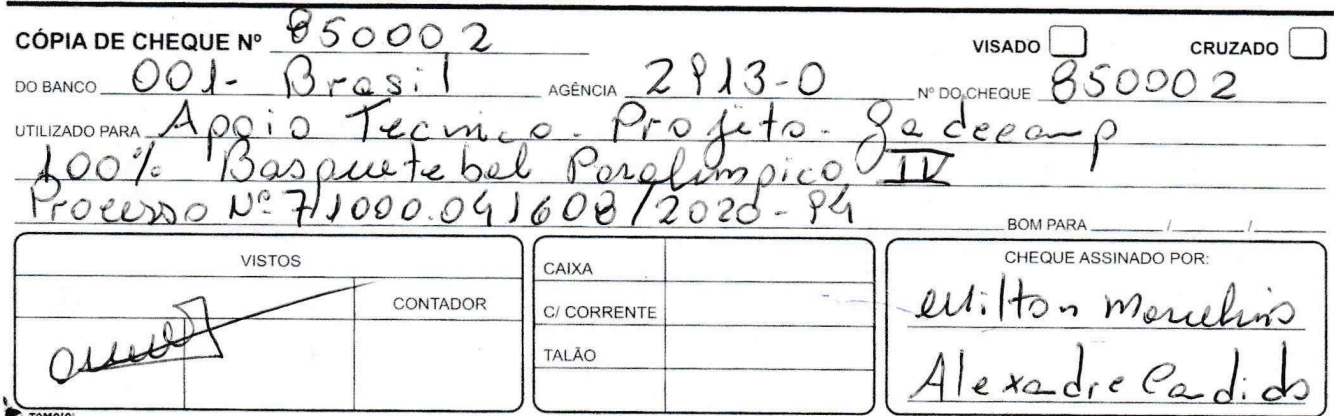 CÓPIA DE CHEQUE Nº 850002 VISADO CRUZADO
DO BANCO 001- Brasil AGÊNCIA 2913-0 Nº DO CHEQUE 850002
UTILIZADO PARA Apoio Tecnico. Projeto. Gadecamp
100% Basquetebol Paralimpico IV
Processo Nº 71000.041608/2020-94
BOM PARA / /
VISTOS
CONTADOR
CAIXA
C/ CORRENTE
TALÃO
CHEQUE ASSINADO POR:
Milton Marcelino
Alexandre Candido
TAMOIO